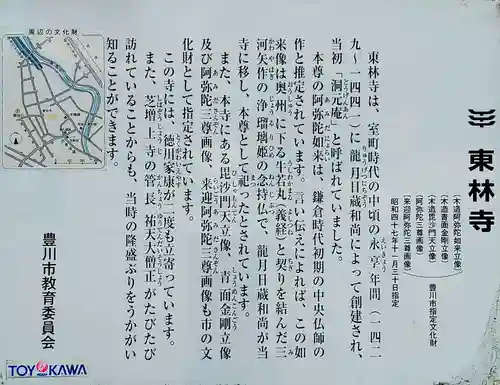 東林寺
(木造阿弥陀如来立像)
(木造青面金剛立像)
(木造毘沙門天立像)
(阿弥陀三尊画像)
(来迎阿弥陀三尊画像)
豊川市指定文化財
昭和四十七年十一月三十日指定
東林寺は、室町時代の中頃の永享年間(一四二
九〜一四四一)に龍月日蔵和尚によって創建され、
当初「洞元庵」と呼ばれていました。
本尊の阿弥陀如来は、鎌倉時代初期の中央仏師の
作と推定されています。言い伝えによれば、この如
来像は奥州に下る牛若丸(義経)と契りを結んだ三
河矢作の浄瑠璃姫の念持仏で、龍月日蔵和尚が当
寺に移し、本尊として祀ったとされています。
また、本寺にある毘沙門天立像、青面金剛立像
及び阿弥陀三尊画像、来迎阿弥陀三尊画像も市の文
化財として指定されています。
この寺には、徳川家康が二度も立寄っています。
また、芝増上寺の管長、祐天大僧正がたびたび
訪れていることからも、当時の隆盛ぶりをうかがい
知ることができます。
豊川市教育委員会
周辺の文化財
TOYOKAWA